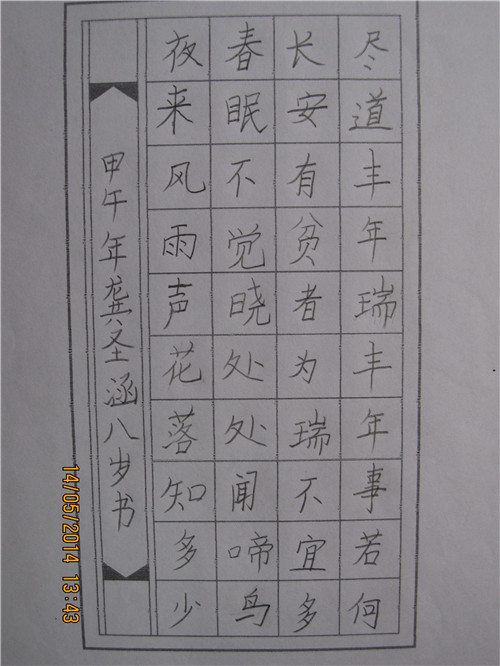 尽道丰年瑞丰年事若何
长安有贫者为瑞不宜多
春眠不觉晓处处闻啼鸟
夜来风雨声花落知多少
甲午年龚圣涵八岁书
14/05/2014 13:43